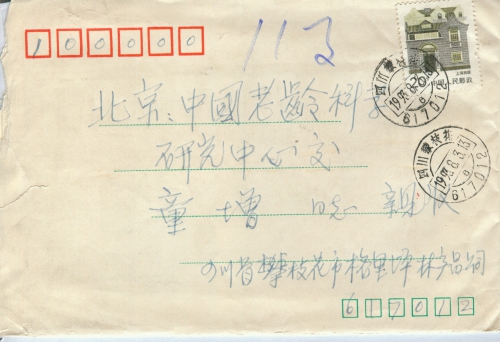 100000
113
上海民居
20
中国人民邮政
四川攀枝花
1993.8.3.15
617012
北京:中國老齡科学
研究中心交
四川攀枝花
1993.8.3.15
617012
童增 同志 親收
四川省攀枝花市格里坪林产品司
617012